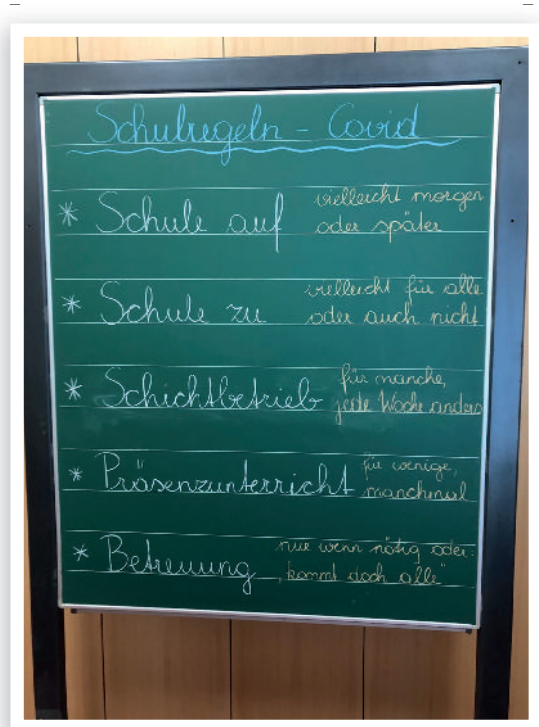 Schulregeln - Covid
* Schule auf vielleicht morgen
oder später
* Schule zu vielleicht für alle
oder auch nicht
* Schichtbetrieb für manche,
jede Woche anders
* Präsenzunterricht für wenige,
manchmal
* Betreuung nur wenn nötig oder:
„kommt doch alle"